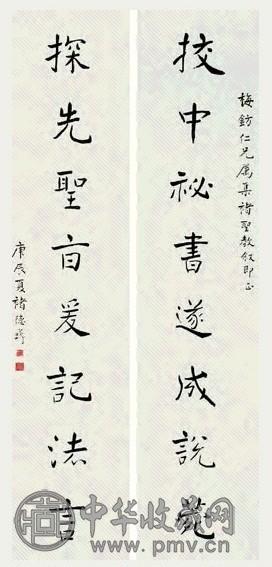 梅鈁仁兄属集褚聖教叙即正
挍中祕書遂成說菀
探先聖㫖爰記法言
庚辰夏褚德彝
中华收藏网
www.pmv.cn